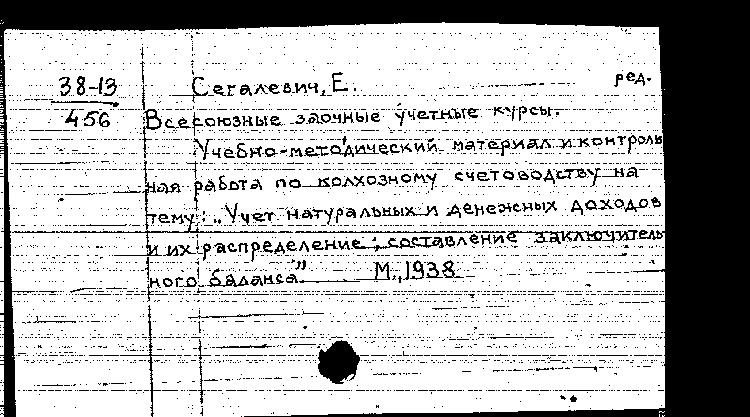 38-13 Сегалевич, Е. ред.
456 Всесоюзные заочные учетные курсы.
Учебно-методический материал и контроль
ная работа по колхозному счетоводству на
тему: „Учет натуральных и денежных доходов
и их распределение; составление заключитель
ного баланса". М., 1938